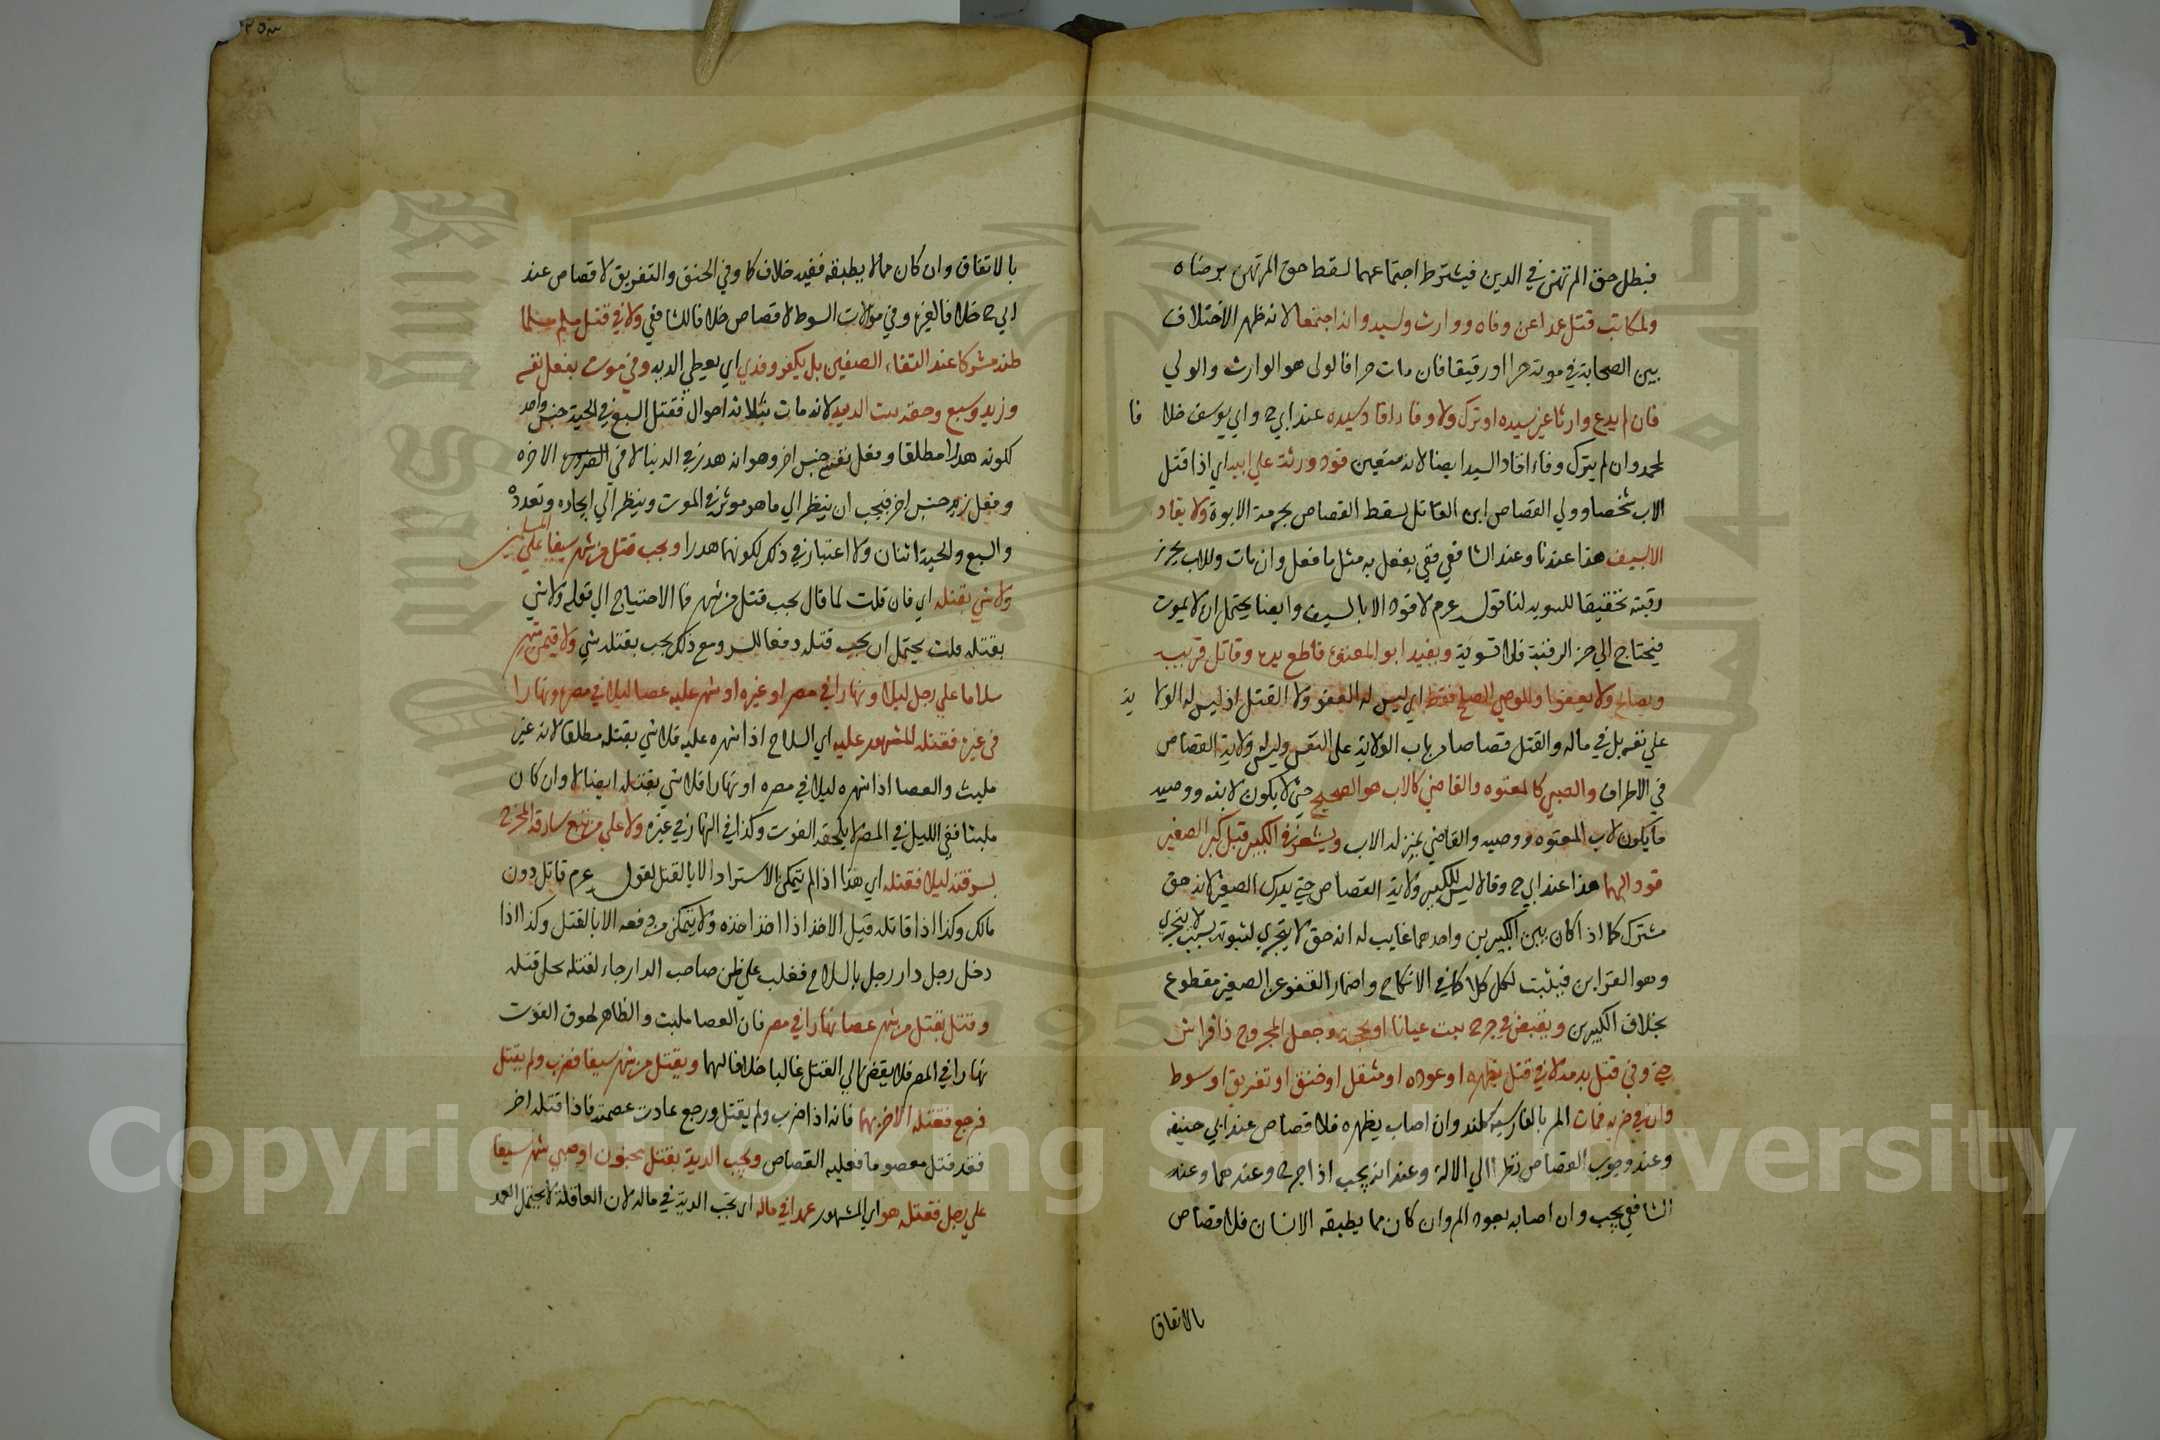 فبطل حق المرتهن في الدين فيشترط اجتماعهما لسقط حق المرتهن برضاه
ولمكاتب قتل عمدا عن وفاء ووارث وسيد وان اجتمعا لانه ظهر الاختلاف
بين الصحابة في موته حرا او رقيقا فان مات حرا فالولي هو الوارث والولي
فان لم يدع وارثا غير سيده او ترك ولا وفاء اقاد سيده عند ابي ح وابي يوسف خلا فا
لمحمد وان لم يترك وفاء اقاد السيد ايضا لانه متعين قود ورثة علي ابيه اي اذا قتل
الاب شخصا وولي القصاص ابن القاتل يسقط القصاص بحرمة الابوة ولا يقاد
الا بسيف هذا عندنا وعند الشافعي يفعل به مثل ما فعل وان مات والا يحز
رقبته تحقيقا للتسوية لنا قول عرم لا قود الا بالسيف وايضا يحتمل ان لا يموت
فيحتاج الي حز الرقبة فلا تسوية ويقيد ابو المعتوه قاطع يده وقاتل قريبه
ويصالح ولا يعفو وللوصي الصلح فقط اي ليس له العفو ولا القتل اذ ليس له الولا ية
علي نفسه بل في ماله والقتل قصاصا من باب الولاية علي النفس وليس ولاية القصاص
في الاطراف والصبي كالمعتوه والقاضي كالاب هو الصحيح حتي لا يكون لابنه ووصيه
ما يكون لاب المعتوه ووصيه والقاضي بمنزلة الاب ويستوفي الكبير قبل كبر الصغير
قودا لهما هذا عند ابي ح وقالا ليس للكبير ولاية القصاص حتي يدرك الصغير لانه حق
مشترك كما اذا كان بين الكبيرين واحدهما غايب له انه حق لا يتجزي لثبوته بسبب لا يتجزي
وهو القرابة فيثبت لكل كلا كما في الانكاح واحتمال العفو عن الصغير مقطوع
بخلاف الكبيرين ويقتص في جرح ثبت عيانا او بحجة وجعل المجروح ذا فراش
حتي وفي قتل بحد مر لا في قتل بظهره او عوده او مثقل او خنق او تغريق او سوط
والي في ضربه فمات المر بالفارسية كلند وان اصاب بظهره فلا قصاص عند ابي حنيفه
وعنه وجوب القصاص نظرا الي الالة وعنه انه يجب اذا جرح وعندهما وعند
الشافعي يجب وان اصابه بعود المر وان كان مما يطيقه الانسان فلا قصاص
بالاتفاق
بالاتفاق وان كان مما لا يطيقه ففيه خلاف كما وفي الخنق والتغريق لا قصاص عند
ابي ح خلافا لغيره وفي موالات السوط لا قصاص خلافا للشافعي ولا في قتل مسلم مسلما
ظنه مشركا عند التقاء الصفين بل يكفر ويدي اي يعطي الدية وفي موت بفعل نفسه
وزيد وسبع وحية ثلث الدية لانه مات بثلاثة احوال ففعل السبع والحية جنس واحد
لكونه هدرا مطلقا وفعل نفسه جنس اخر وهو انه هدر في الدنيا لا في الاخره
وفعل زيد جنس اخر فيجب ان ينظر الي ما هو موثر في الموت وينظر الي اتحاده وتعدده
والسبع والحية اثنان ولا اعتبار في ذلك لكونهما هدرا ويجب قتل من شهر سيفا علي المسلمين
ولا شي بقتله اي فان قلت لما قال يجب قتل من شهر فما الاحتياج الي قوله ولا شي
بقتله قلت يحتمل ان يجب قتله دفعا للشر ومع ذلك يجب بقتله شي ولا فيمن شهر
سلاحا علي رجل ليلا ونهارا في مصر او غيره او شهر عليه عصا ليلا في مصر ونهارا
في غيره فقتله المشهور عليه اي السلاح اذا شهره عليه فلا شي بقتله مطلقا لانه غير
ملبث والعصا اذا شهره ليلا في مصره او نهارا فلا شي بقتله ايضا لا وان كان
ملبثا ففي الليل في المصر لا يلحقه الغوث وكذا في النهار في غيره ولا علي من تبع سارقه المخرج
بسرقته ليلا فقتله اي هذا اذا لم يتمكن الاسترداد الا بالقتل لقول عرم قاتل دون
مالك وكذا اذا قاتله قبل الاخذ اذا اخذ اخذه ولا يتمكن من دفعه الا بالقتل وكذا اذا
دخل رجل دار رجل بالسلاح فغلب علي ظن صاحب الدار جاء لقتله يحل قتله
وقتل بقتل من شهر عصا نهارا في مصر فان العصا ملبث والظاهر لحوق الغوث
نهارا في المصر فلا يقضي الي القتل غالبا خلافا لهما ويقتل من شهر سيفا فضرب ولم يقتل
فرجع فقتله الاخر بهما فانه اذا ضرب ولم يقتل ورجع عادت عصمته فاذا قتله اخر
فقد قتل معصوما فعليه القصاص ويجب الدية بقتل مجنون او صبي شهر سيفا
علي رجل فقتله هو اي المشهور عمدا في ماله اي تجب الدية في ماله لان العاقلة لا تحتمل العمد
Copyright © King Saud University
King Saud University
1957